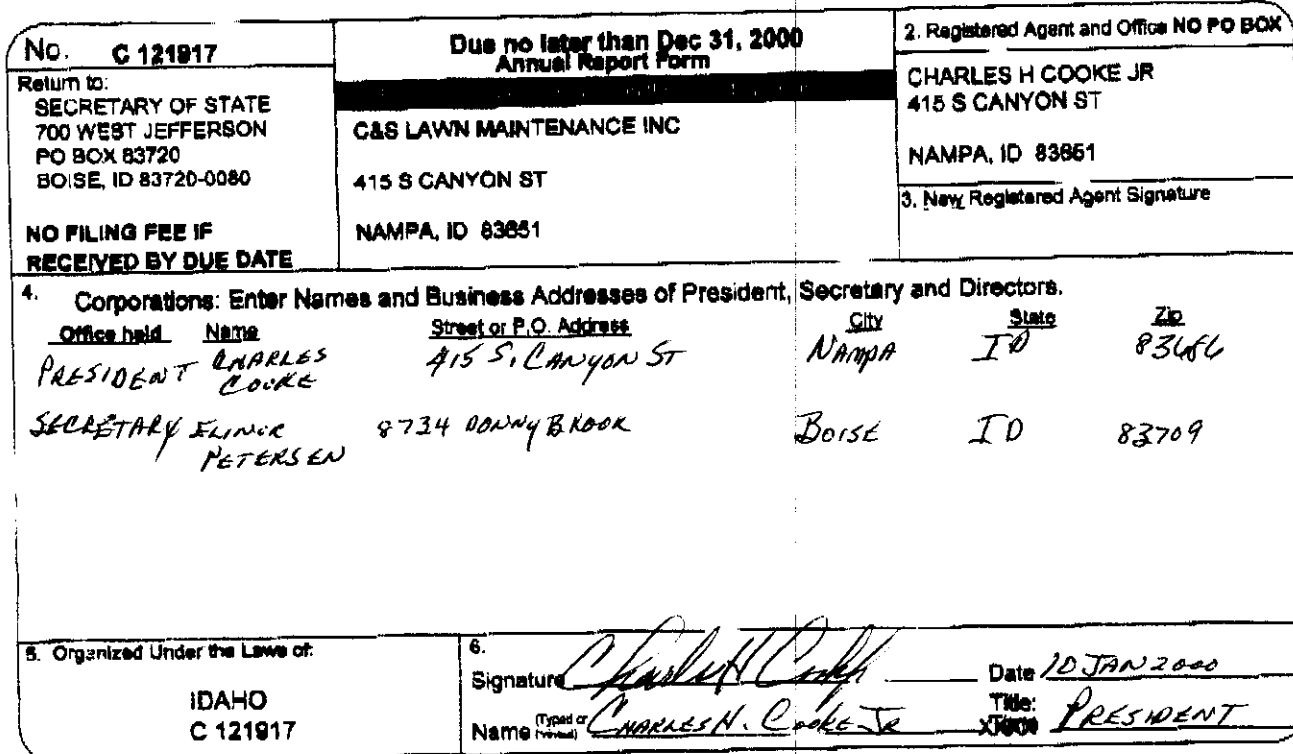 No. C 121917
Return to:
SECRETARY OF STATE
700 WEST JEFFERSON
PO BOX 83720
BOISE, ID 83720-0080
NO FILING FEE IF
RECEIVED BY DUE DATE
Due no later than Dec 31, 2000
Annual Report Form
C&S LAWN MAINTENANCE INC
415 S CANYON ST
NAMPA, ID 83651
2. Registered Agent and Office NO PO BOX
CHARLES H COOKE JR
415 S CANYON ST
NAMPA, ID 83651
3. New Registered Agent Signature
4. Corporations: Enter Names and Business Addresses of President, Secretary and Directors.
Office held Name Street or P.O. Address City State Zip
PRESIDENT CHARLES COOKE 415 S. CANYON ST NAMPA ID
SECRETARY ELINOR PETERSEN 8734 DONNYBROOK BOISE ID 83709
5. Organized Under the Laws of:
IDAHO
C 121917
6.
Signature Charles H Cooke Date 10 JAN 2000
Name (Typed or Printed) CHARLES H. COOKE JR Title: PRESIDENT